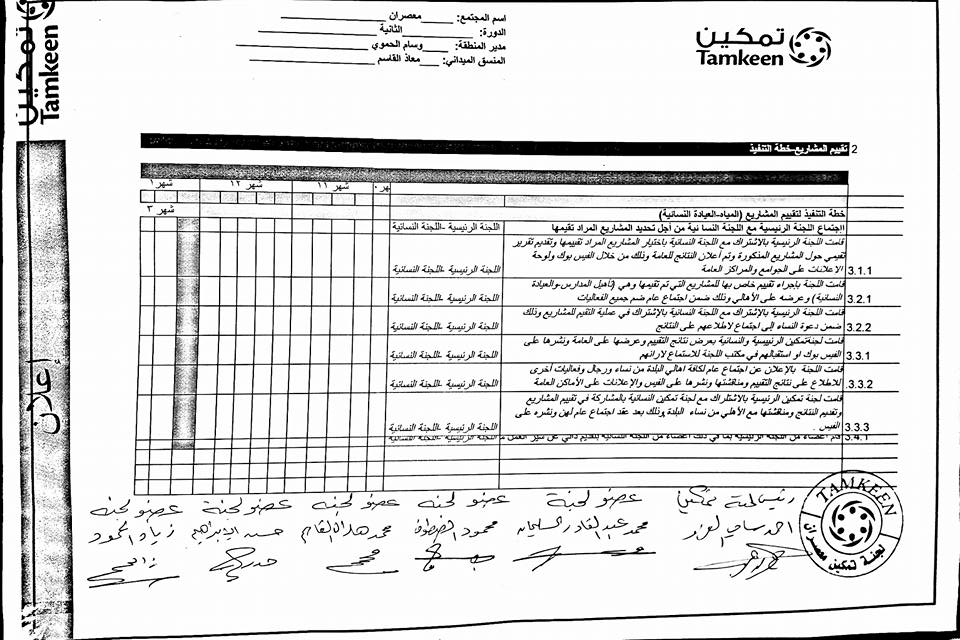 تمكين
Tamkeen
إعلان
اسم المجتمع: معصران
الدورة: الثانية
مدير المنطقة: وسام الحموي
المنسق الميداني: معاذ القاسم
تمكين
Tamkeen
2 تقييم المشاريع-خطة التنفيذ
شهر ١١ شهر ١٢ شهر ١
شهر ٣
خطة التنفيذ لتقييم المشاريع (المياه-العيادة النسائية)
اجتماع اللجنة الرئيسية مع اللجنة النسائية من أجل تحديد المشاريع المراد تقيمها اللجنة الرئيسية -اللجنة النسائية
قامت اللجنة الرئيسية بالاشتراك مع اللجنة النسائية باختيار المشاريع المراد تقييمها وتقديم تقرير
تقيمي حول المشاريع المذكورة وتم أعلان النتائج للعامة وذلك من خلال الفيس بوك ولوحة
3.1.1 الإعلانات على الجوامع والمراكز العامة اللجنة الرئيسية -اللجنة النسائية
قامت اللجنة بإجراء تقييم خاص بها للمشاريع التي تم تقيمها وهي (تأهيل المدارس-والعيادة
3.2.1 النسائية) وعرضه على الأهالي وذلك ضمن اجتماع عام ضم جميع الفعاليات اللجنة الرئيسية -اللجنة النسائية
قامت اللجنة الرئيسية بالاشتراك مع اللجنة النسائية بالاشتراك في عملية التقيم للمشاريع وذلك
3.2.2 ضمن دعوة النساء إلى اجتماع لاطلاعهم على النتائج اللجنة الرئيسية -اللجنة النسائية
قامت لجنة تمكين الرئيسية والنسائية بعرض نتائج التقييم وعرضها على العامة ونشرها على
3.3.1 الفيس بوك او استقبالهم في مكتب اللجنة للاستماع لارائهم اللجنة الرئيسية -اللجنة النسائية
قامت اللجنة بالإعلان عن اجتماع عام لكافة اهالي البلدة من نساء ورجال وفعاليات أخرى
3.3.2 للاطلاع على نتائج التقييم ومناقشتها ونشرها على الفيس والإعلانات على الأماكن العامة اللجنة الرئيسية -اللجنة النسائية
قامت لجنة تمكين الرئيسية بالاشتراك مع لجنة تمكين النسائية بالمشاركة في تقييم المشاريع
وتقديم النتائج ومناقشتها مع الأهلي من نساء البلدة وذلك بعد عقد اجتماع عام لهن ونشره على
3.3.3 الفيس . اللجنة الرئيسية -اللجنة النسائية
3.4.1 قام أعضاء من اللجنة الرئيسية بما في ذلك أعضاء من اللجنة النسائية بتقديم ذاتي عن سير العمل
رئيس لجنة تمكين عضو لجنة عضو لجنة عضو لجنة عضو لجنة عضو لجنة
احمد سامي محمد عبد القادر السليمان محمود محمد هلال القاسم حسن الابراهيم زياد المحمود
TAMKEEN
لجنة تمكين معصران